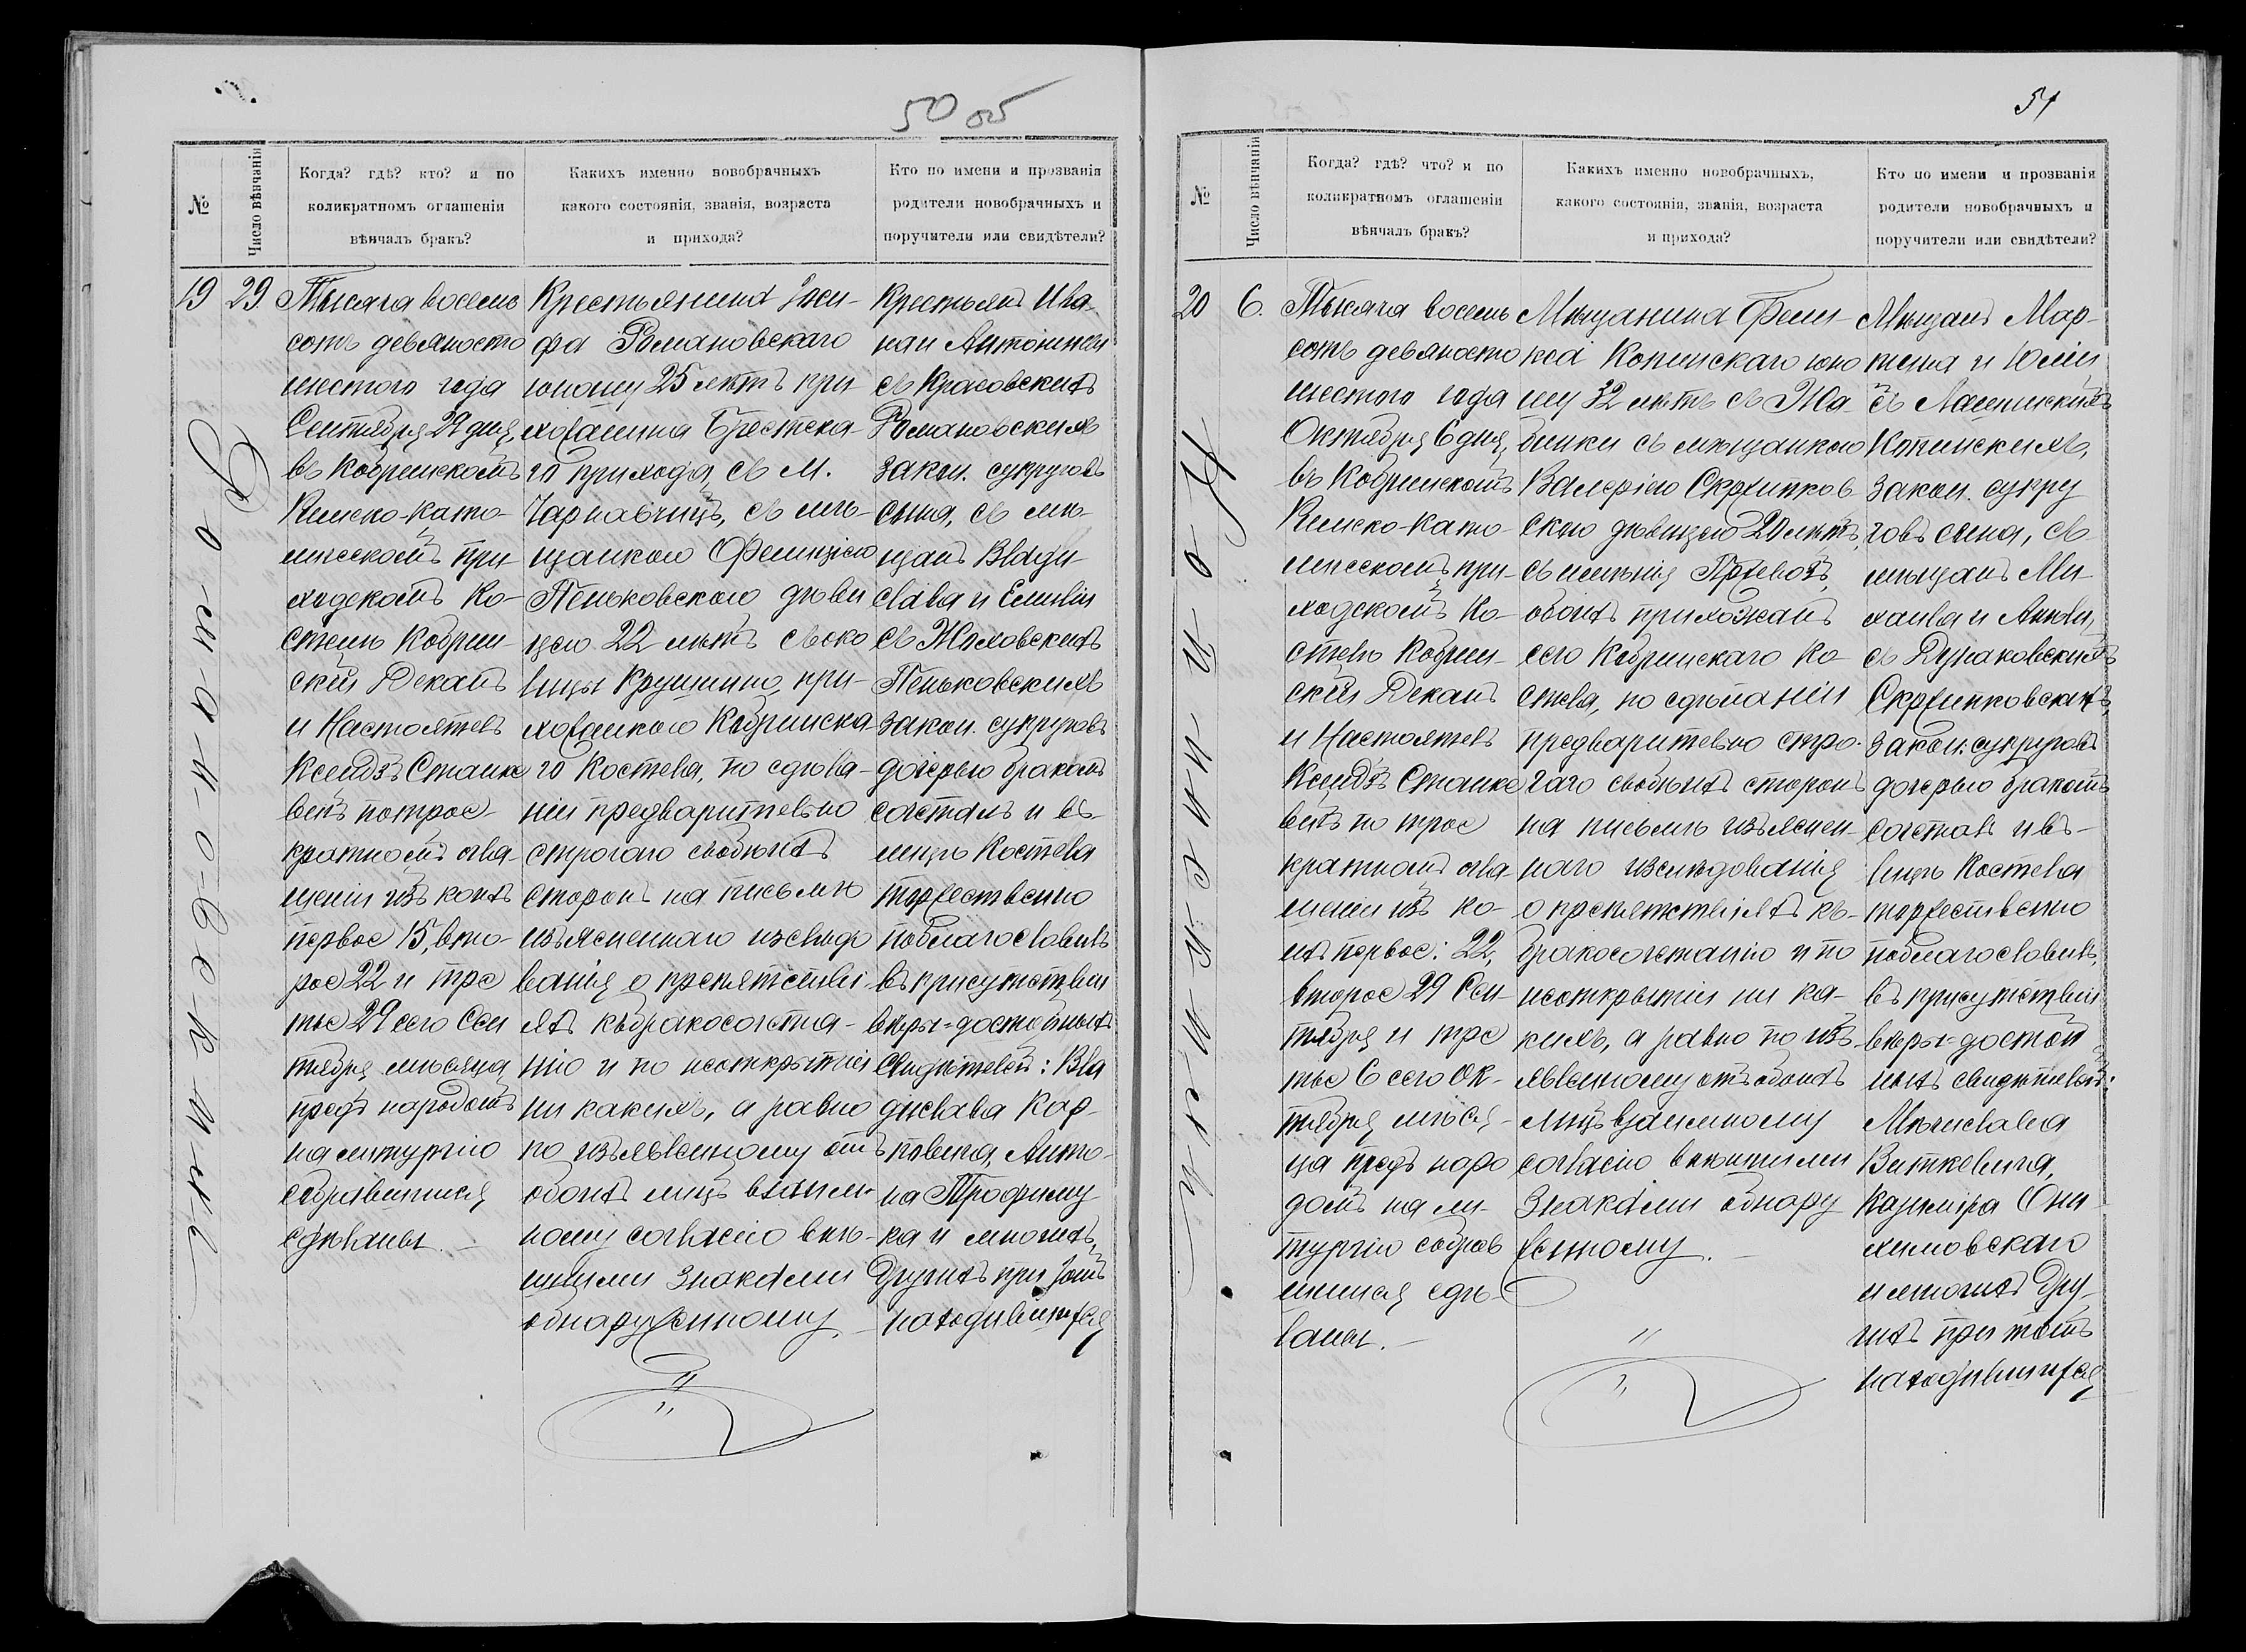 50 об
№
Число вѣнчанія
Когда? гдѣ? кто? и по
коликратномъ оглашеніи
вѣнчалъ бракъ?
Какихъ именно новобрачныхъ
какого состоянія, званія, возраста
и прихода?
Кто по имени и прозванія
родители новобрачныхъ и
поручители или свидѣтели?
19
29.
Романовскій
Тысяча восемь
сотъ девяносто
шестого года
Сентября 29 дня,
въ Кобринскомъ
Римско-като-
лическомъ при-
ходскомъ Ко-
стелѣ Кобрин-
скій Деканъ
и Настоятель
Ксендзъ Станке
вичъ по трое-
кратномъ огла-
шеніи изъ коихъ
первое 15, вто-
рое 22 и тре
тье 29 сего Сен
тября мѣсяца
предъ народомъ
на литургію
собравшимся
сдѣланы.
Крестьянина Іоси-
фа Романовскаго
юношу 25 лѣтъ при-
хожанина Брестска-
го прихода, съ м.
Чарнавчицъ, съ мѣ-
щанкою Фелиціею
Пеньковскою дѣви
цею 22 лѣтъ съ око
лицы Крушино, при-
хожанкою Кобринска-
го Костела, по сдѣла-
ніи предварительно
строгаго обоихъ
сторонъ на письмѣ
изъясненнаго изслѣдо
ванія о препятстві-
яхъ къ бракосочета-
нію и по неоткрытіи
ни какихъ, а равно
по изъявленному отъ
обоихъ лицъ взаим-
ному согласію внѣ-
шними знаками
обнаруженному.
Крестьянъ Ива-
на и Антонины
съ Красовскихъ
Романовскихъ
закон. супруговъ
сына, съ мѣ-
щанъ Влади-
слава и Емиліи
съ Жоховскихъ
Пеньковскихъ
закон. супруговъ
дочерью бракомъ
сочеталъ и въ
лицѣ Костела
торжественно
поблагословилъ
въ присутствіи
вѣры-достойныхъ
свидѣтелей: Вла
дислава Кар-
повича, Анто-
на Трофиму
ка и многихъ
другихъ при томъ
находившихся
51
№
Число вѣнчанія
Когда? гдѣ? что? и по
коликратномъ оглашеніи
вѣнчалъ бракъ?
Какихъ именно новобрачныхъ,
какого состоянія, званія, возраста
и прихода?
Кто по имени и прозванія
родители новобрачныхъ и
поручители или свидѣтели?
20
6.
Тысяча восемь
сотъ девяносто
шестого года
Октября 6 дня,
въ Кобринскомъ
Римско-като-
лическомъ при-
ходскомъ Ко-
стелѣ Кобрин-
скій Деканъ
и Настоятель
Ксендзъ Станке
вичъ по трое
кратномъ огла
шеніи изъ ко-
ихъ первое: 22,
второе 29 Сен-
тября и тре
тье 6 сего Ок-
тября мѣся-
ца предъ наро
домъ на ли-
тургію собрав
шимся сдѣ-
ланы.
Мѣщанина Фели-
кса Копинскаго юно
шу 32 лѣтъ съ Жа-
бинки съ мѣщанкою
Валеріею Скржипков-
скою дѣвицею 20 лѣтъ,
съ имѣнія
обоихъ прихожанъ
сего Кобринскаго Ко-
стела, по сдѣланіи
предварительно стро-
гаго обоихъ сторонъ
на письмѣ изъяснен-
наго изслѣдованія
о препятствіяхъ къ
бракосочетанію и по
неоткрытіи ни ка-
кихъ, а равно по изъ-
явленному отъ обоихъ
лицъ взаимному
согласію внѣшними
знаками обнару
женному.
Мѣщанъ Мар-
тина и Юліи
съ
Копинскихъ,
закон. супру
говъ сына, съ
мѣщанъ Ми-
хаила и
съ
Скржипковскихъ,
закон. супруговъ
дочерью бракомъ
сочеталъ и въ
лицѣ Костела
торжественно
поблагословилъ,
въ присутствіи
вѣры-достой
ныхъ свидѣтелей:
Мечислава
Виткевича,
Казиміра
и многихъ дру-
гихъ при томъ
находившихся